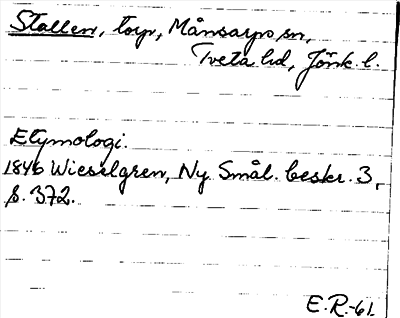 Stallen, torp, Månsarps sn,
Tveta hd, Jönk. l.
Etymologi.
1846 Wieselgren, Ny Smål. beskr. 3,
s. 372.
E.R.-61.